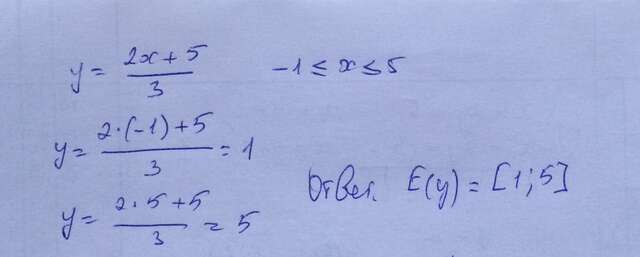 y = (2x + 5)/3    -1 ≤ x ≤ 5
y = (2·(-1) + 5)/3 = 1
y = (2·5 + 5)/3 = 5
Ответ. E(y) = [1; 5]